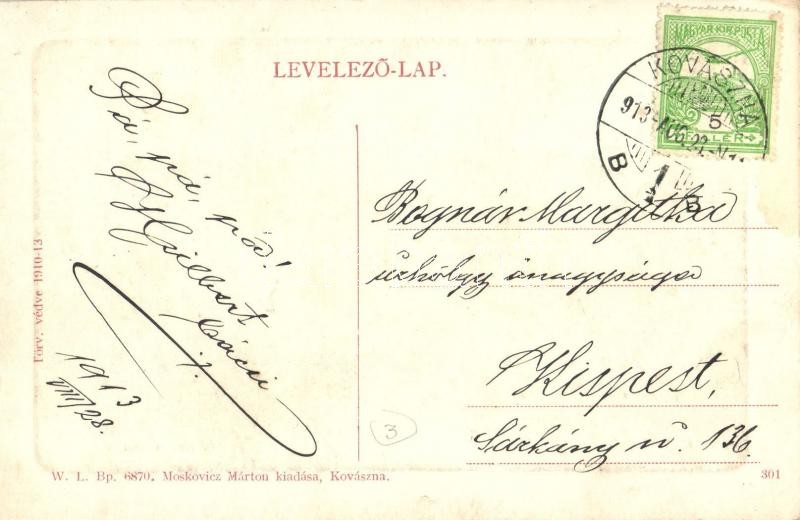 LEVELEZŐ-LAP.
MAGYAR KIR. POSTA
5
FILLÉR
KOVÁSZNA
913 AUG. 29.
B
Pá, pá, pá!
1913
VIII/28.
Bognár Margitka
úrhölgy őnagysága
Kispest,
Sárkány u. 136.
3
Törv. védve 1910-13
W. L. Bp. 6870. Moskovicz Márton kiadása, Kovászna.
301